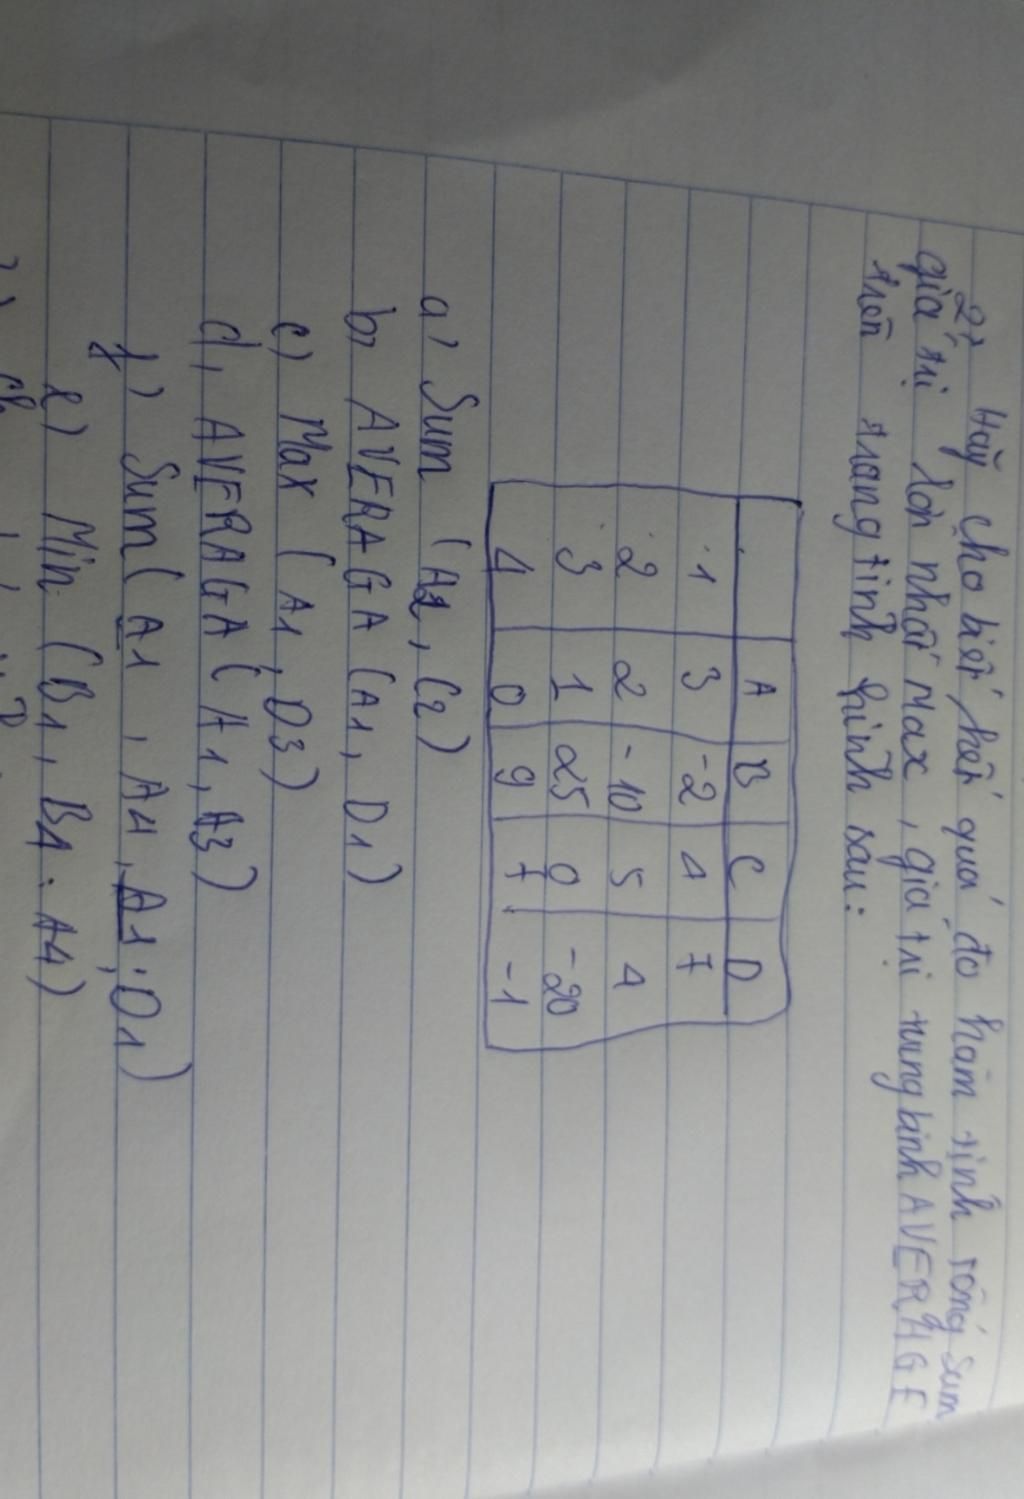 2, Hãy cho biết kết quả do hàm tính tổng sum
giá trị lớn nhất Max, giá trị trung bình AVERAGE
trên trang tính hình sau:
A B C D
1 3 -2 4 7
2 2 -10 5 4
3 1 25 0 -20
4 0 9 7 -1
a, Sum (A2, C2)
b, AVERAGA (A1, D1)
c) Max (A1, D3)
d, AVERAGA (A1, A3)
f) Sum (A1, A4, A1:D1)
e) Min (B1, B4:A4)